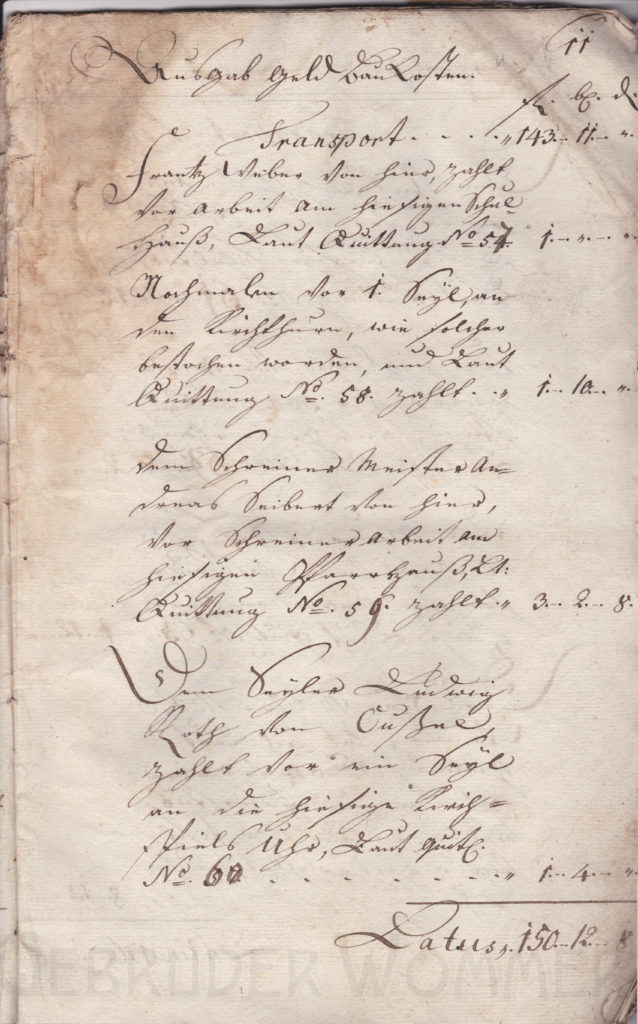 11
Ausgab Geld Baukosten.
fl. bz. d.
Transport . . . " 143.- 11.- "
Frantz Weber von hier, zahlt
vor Arbeit am hiesigen Schul-
Hauß, Laut Quittung No 57. 1.- "- "
Nochmalen vor 1. Seyl, an
den Kirchthurn, wie solcher
bestochen worden, und Laut
Quittung No. 58. zahlt. " 1.- 10.- "
dem Schreiner Meister An=
dreas Seibert von hier,
vor Schreiner Arbeit am
hiesigen Pfarrhauß, Lt:
Quittung No. 59. zahlt " 3.- 2.- 8.
Dem Seyler Ludwig
Roth von Cußel,
zahlt vor ein Seyl
an die hiesige Kirch=
spiels Uhr, Laut quit.
No. 60 - - - - - " 1.- 4.- "
Latus, 150.- 12.- 8
GEBRÜDER WOMMER